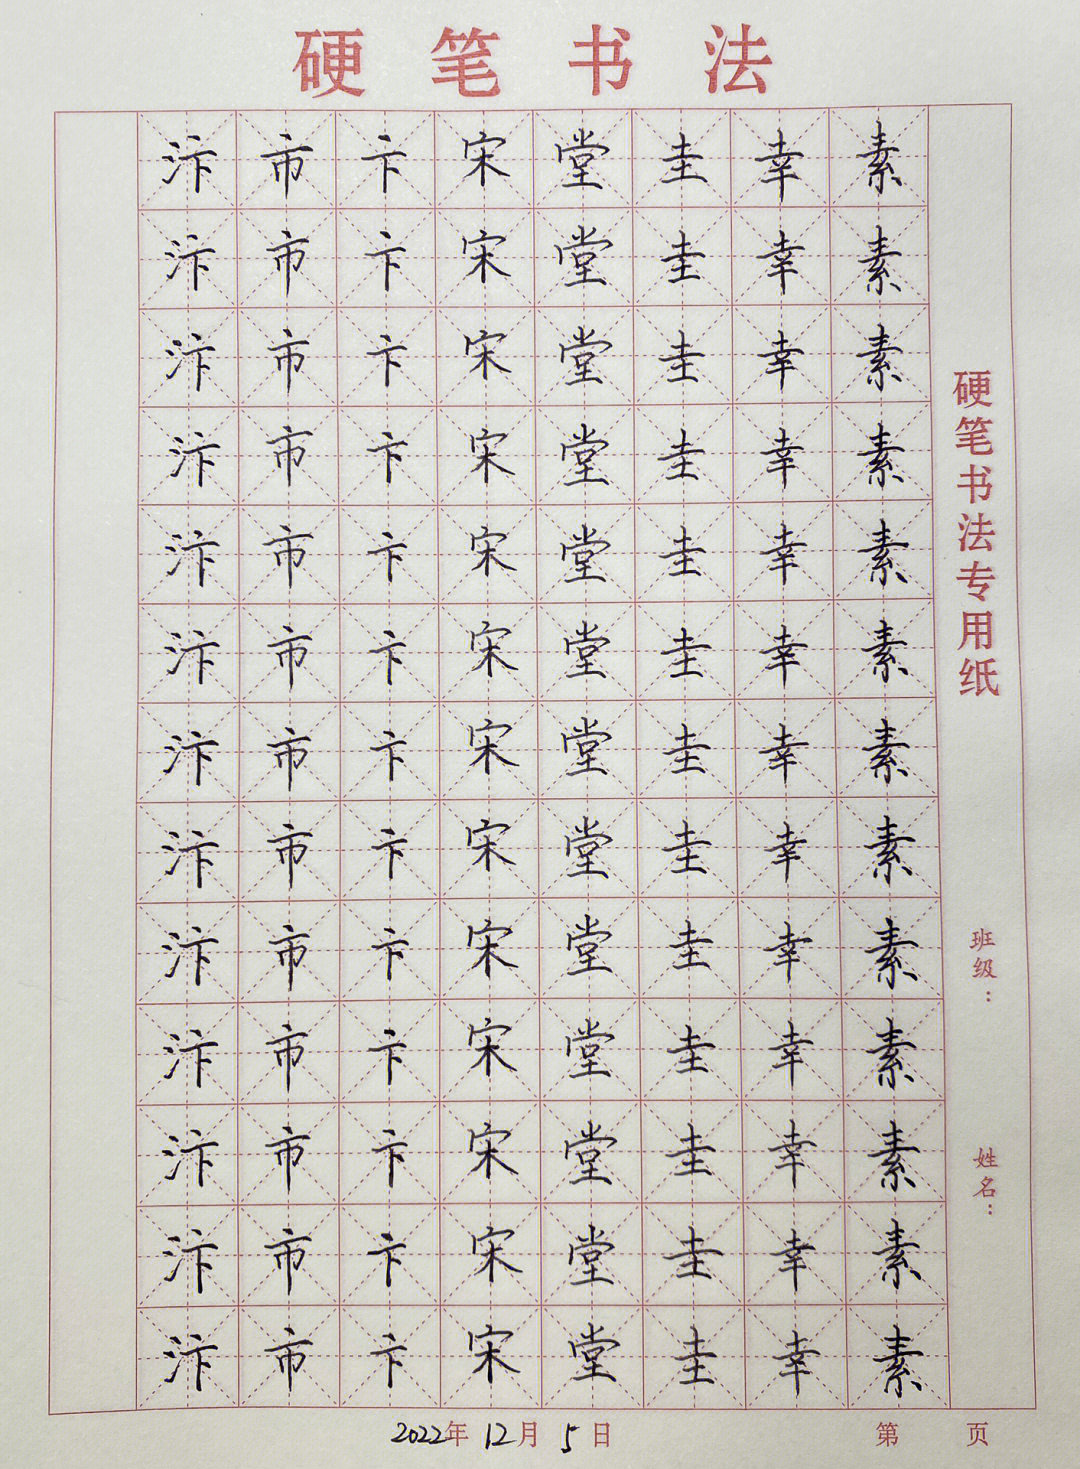 硬笔书法
汴市卞宋堂圭幸素
汴市卞宋堂圭幸素
汴市卞宋堂圭幸素
汴市卞宋堂圭幸素
汴市卞宋堂圭幸素
汴市卞宋堂圭幸素
汴市卞宋堂圭幸素
汴市卞宋堂圭幸素
汴市卞宋堂圭幸素
汴市卞宋堂圭幸素
汴市卞宋堂圭幸素
汴市卞宋堂圭幸素
汴市卞宋堂圭幸素
硬笔书法专用纸
班级：
姓名：
2022年12月5日
第 页